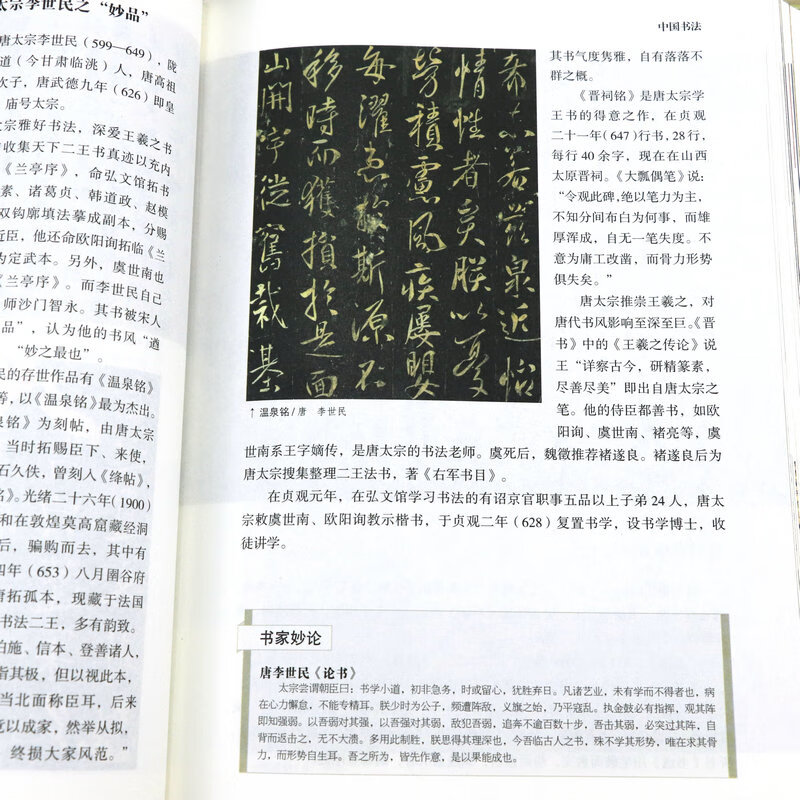 太宗李世民之“妙品”
唐太宗李世民（599—649），陇
道（今甘肃临洮）人，唐高祖
次子，唐武德九年（626）即皇
庙号太宗。
太宗雅好书法，深爱王羲之书
收集天下二王书真迹以充内
《兰亭序》，命弘文馆拓书
素、诸葛贞、韩道政、赵模
双钩廓填法摹成副本，分赐
近臣，他还命欧阳询拓临《兰
为定武本。另外，虞世南也
《兰亭序》。而李世民自己
师沙门智永。其书被宋人
品”，认为他的书风“道
“妙之最也”。
民的存世作品有《温泉铭》
等，以《温泉铭》最为杰出。
泉铭》为刻帖，由唐太宗
当时拓赐臣下、来使，
石久佚，曾刻入《绛帖》，
铭》。光绪二十六年（1900）
和在敦煌莫高窟藏经洞
后，骗购而去，其中有
四年（653）八月圉谷府
唐拓孤本，现藏于法国
书法二王，多有韵致。
伯施、信本、登善诸人，
指其极，但以视此本，
当北面称臣耳，后来
竟以成家，然举从拟，
终损大家风范。”
中国书法
泉近怡
情性者矣朕以憂
勞積慮風疾屢嬰
每濯患於斯源不
移時而獲損於是面
山開宇從舊裁基
↑温泉铭/唐 李世民
其书气度隽雅，自有落落不
群之概。
《晋祠铭》是唐太宗学
王书的得意之作，在贞观
二十一年（647）行书，28行，
每行40余字，现在在山西
太原晋祠。《大瓢偶笔》说：
“令观此碑，绝以笔力为主，
不知分间布白为何事，而雄
厚浑成，自无一笔失度。不
意为庸工改凿，而骨力形势
俱失矣。”
唐太宗推崇王羲之，对
唐代书风影响至深至巨。《晋
书》中的《王羲之传论》说
王“详察古今，研精篆素，
尽善尽美”即出自唐太宗之
笔。他的侍臣都善书，如欧
阳询、虞世南、褚亮等，虞
世南系王字嫡传，是唐太宗的书法老师。虞死后，魏徵推荐褚遂良。褚遂良后为
唐太宗搜集整理二王法书，著《右军书目》。
在贞观元年，在弘文馆学习书法的有诏京官职事五品以上子弟24人，唐太
宗敕虞世南、欧阳询教示楷书，于贞观二年（628）复置书学，设书学博士，收
徒讲学。
书家妙论
唐李世民《论书》
太宗尝谓朝臣曰：书学小道，初非急务，时或留心，犹胜弃日。凡诸艺业，未有学而不得者也，病
在心力懈怠，不能专精耳。朕少时为公子，频遭阵敌，义旗之始，乃平寇乱。执金鼓必有指挥，观其阵
即知强弱。以吾弱对其强，以吾强对其弱，敌犯吾弱，追奔不逾百数十步，吾击其弱，必突过其阵，自
背而返击之，无不大溃。多用此制胜，朕思得其理深也，今吾临古人之书，殊不学其形势，唯在求其骨
力，而形势自生耳。吾之所为，皆先作意，是以果能成也。